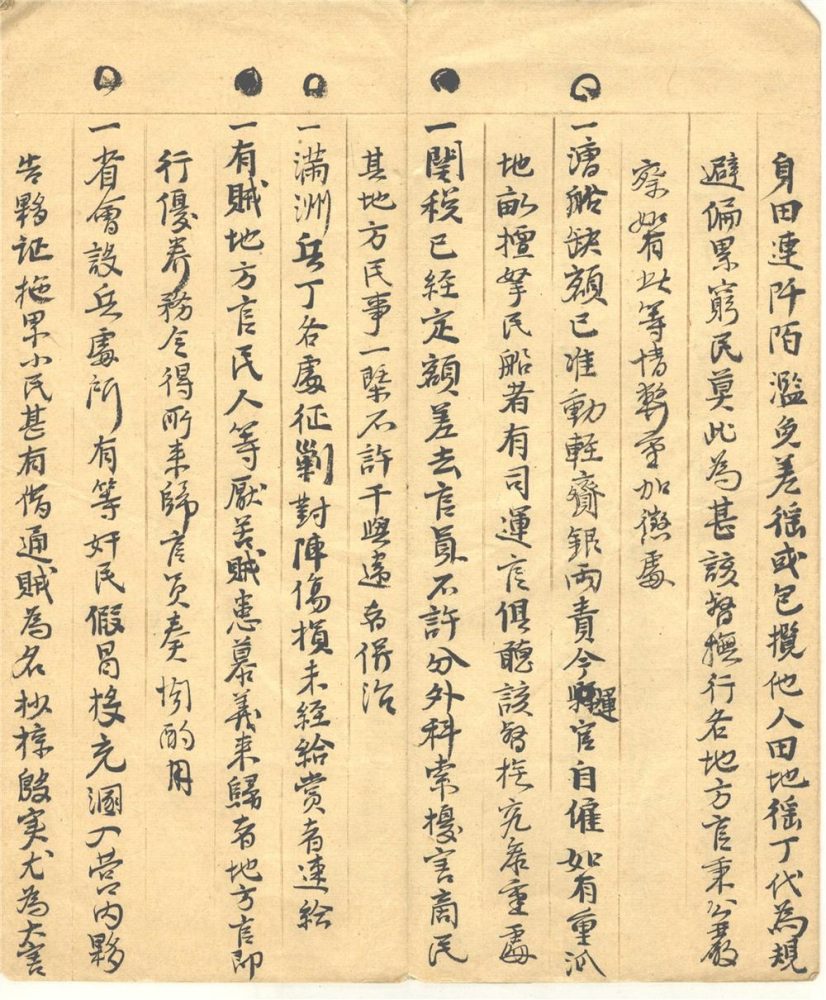 身田連阡陌濫免差徭或包攬他人田地徭丁代為規
避偏累窮民莫此為甚該督撫行各地方官秉公嚴
察如有此等情弊重加懲處
一漕船缺額已准動輕齎銀兩責令縣運官自僱如有重派
地畝擅拏民船者有司運官俱聽該督撫究處重處
一関稅已經定額差去官員不許分外科索擾害商民
其地方民事一槩不許干與違者併治
一滿洲兵丁各處征剿對陣傷損未經給賞者速給
一有賊地方官民人等厭苦賊患慕義来歸者地方官即
行優养務令得所来歸官員奏聞酌用
一省會設兵處所有等奸民假冒投充溷入營内夥
告夥证拖累小民甚有借通賊為名抄掠殷实尤為大害